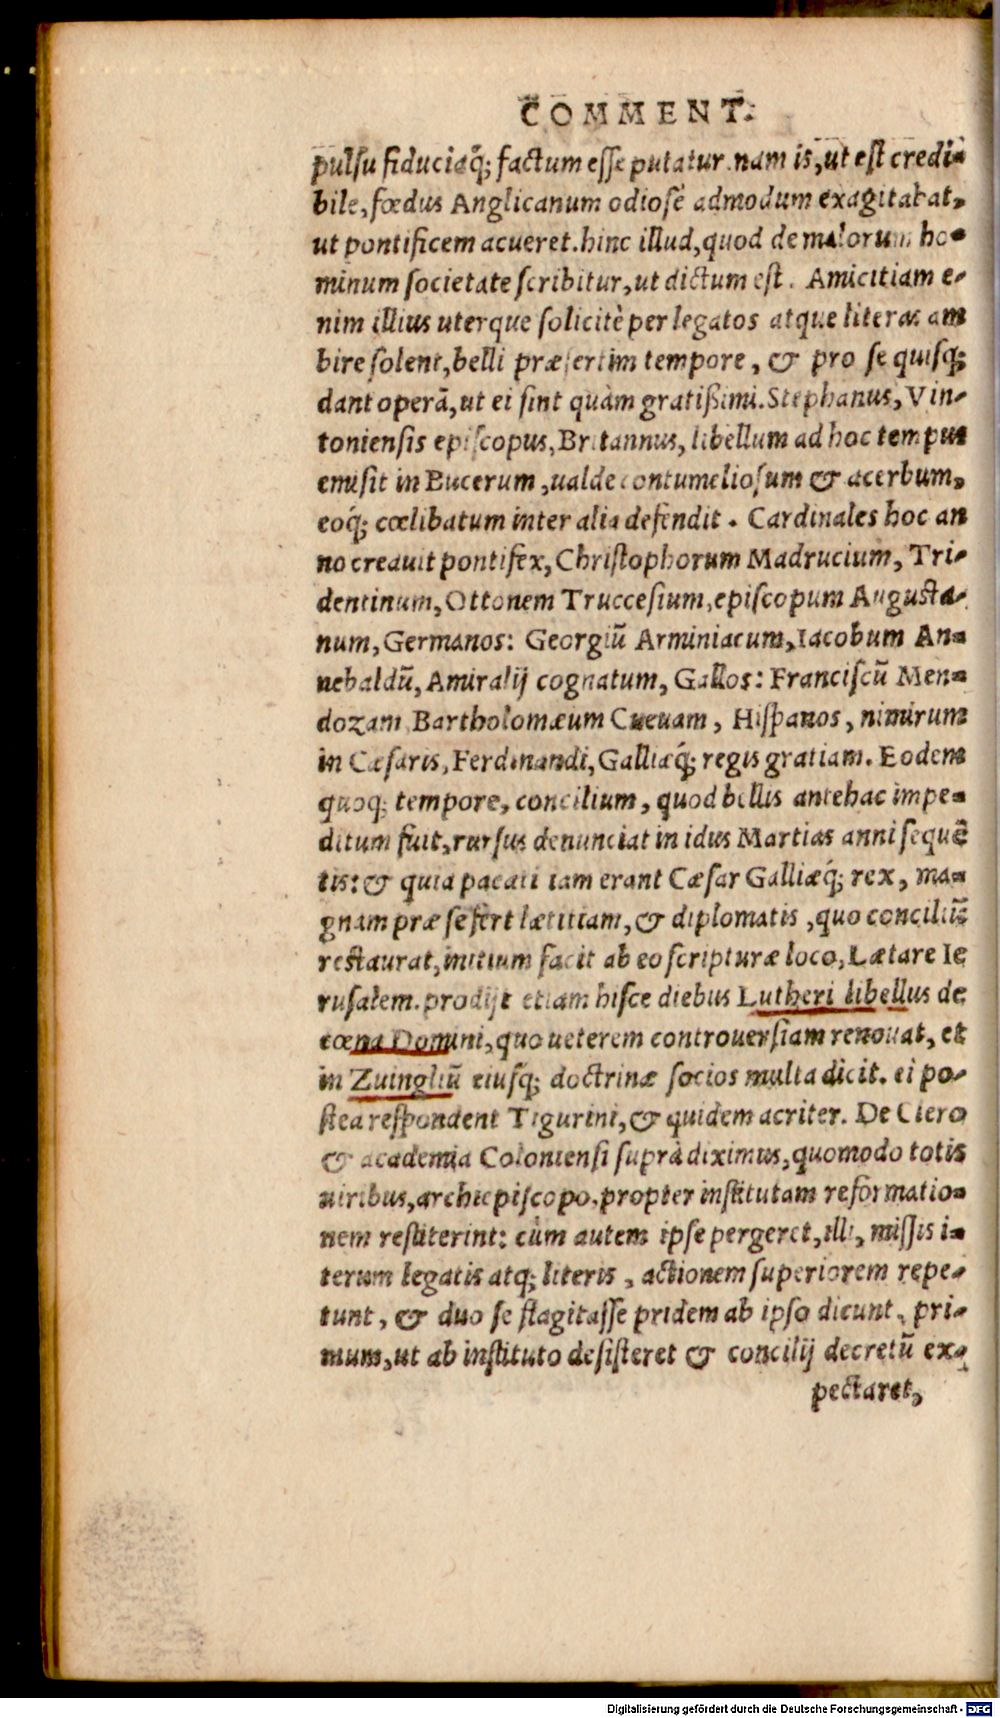 COMMENT.
pulsu fiduciaq́; factum esse putatur. nam is, ut est credi-
bile, fœdus Anglicanum odiosè admodum exagitabat,
ut pontificem acueret. hinc illud, quod de malorum ho-
minum societate scribitur, ut dictum est. Amicitiam e-
nim illius uterque solicitè per legatos atque literas am
bire solent, belli præsertim tempore, & pro se quisq;
dant operã, ut ei sint quàm gratißimi. Stephanus, Vin-
toniensis episcopus, Britannus, libellum ad hoc tempus
emisit in Bucerum, ualde contumeliosum & acerbum,
eoq́; cœlibatum inter alia defendit. Cardinales hoc an
no creauit pontifex, Christophorum Madrucium, Tri-
dentinum, Ottonem Truccesium, episcopum Augusta-
num, Germanos: Georgiũ Arminiacum, Iacobum An-
nebaldũ, Amiralij cognatum, Gallos: Franciscũ Men-
dozam, Bartholomæum Cueuam, Hispanos, nimirum
in Cæsaris, Ferdinandi, Galliæq́; regis gratiam. Eodem
quoq; tempore, concilium, quod bellis antehac impe-
ditum fuit, rursus denunciat in idus Martias anni sequẽ
tis: & quia pacati iam erant Cæsar Galliæq́; rex, ma-
gnam præ se fert lætitiam, & diplomatis, quo conciliũ
restaurat, initium facit ab eo scripturæ loco, Lætare Ie
rusalem. prodijt etiam hisce diebus Lutheri libellus de
cœna Domini, quo ueterem controuersiam renouat, et
in Zuingliũ eiusq; doctrinæ socios multa dicit. ei po-
stea respondent Tigurini, & quidem acriter. De Clero
& academia Coloniensi suprà diximus, quomodo totis
uiribus, archiepiscopo, propter institutam reformatio-
nem restiterint: cùm autem ipse pergeret, illi, missis i-
terum legatis atq; literis, actionem superiorem repe-
tunt, & duo se flagitasse pridem ab ipso dicunt, pri-
mum, ut ab instituto desisteret & concilij decretũ ex-
pectaret,
Digitalisierung gefördert durch die Deutsche Forschungsgemeinschaft - DFG